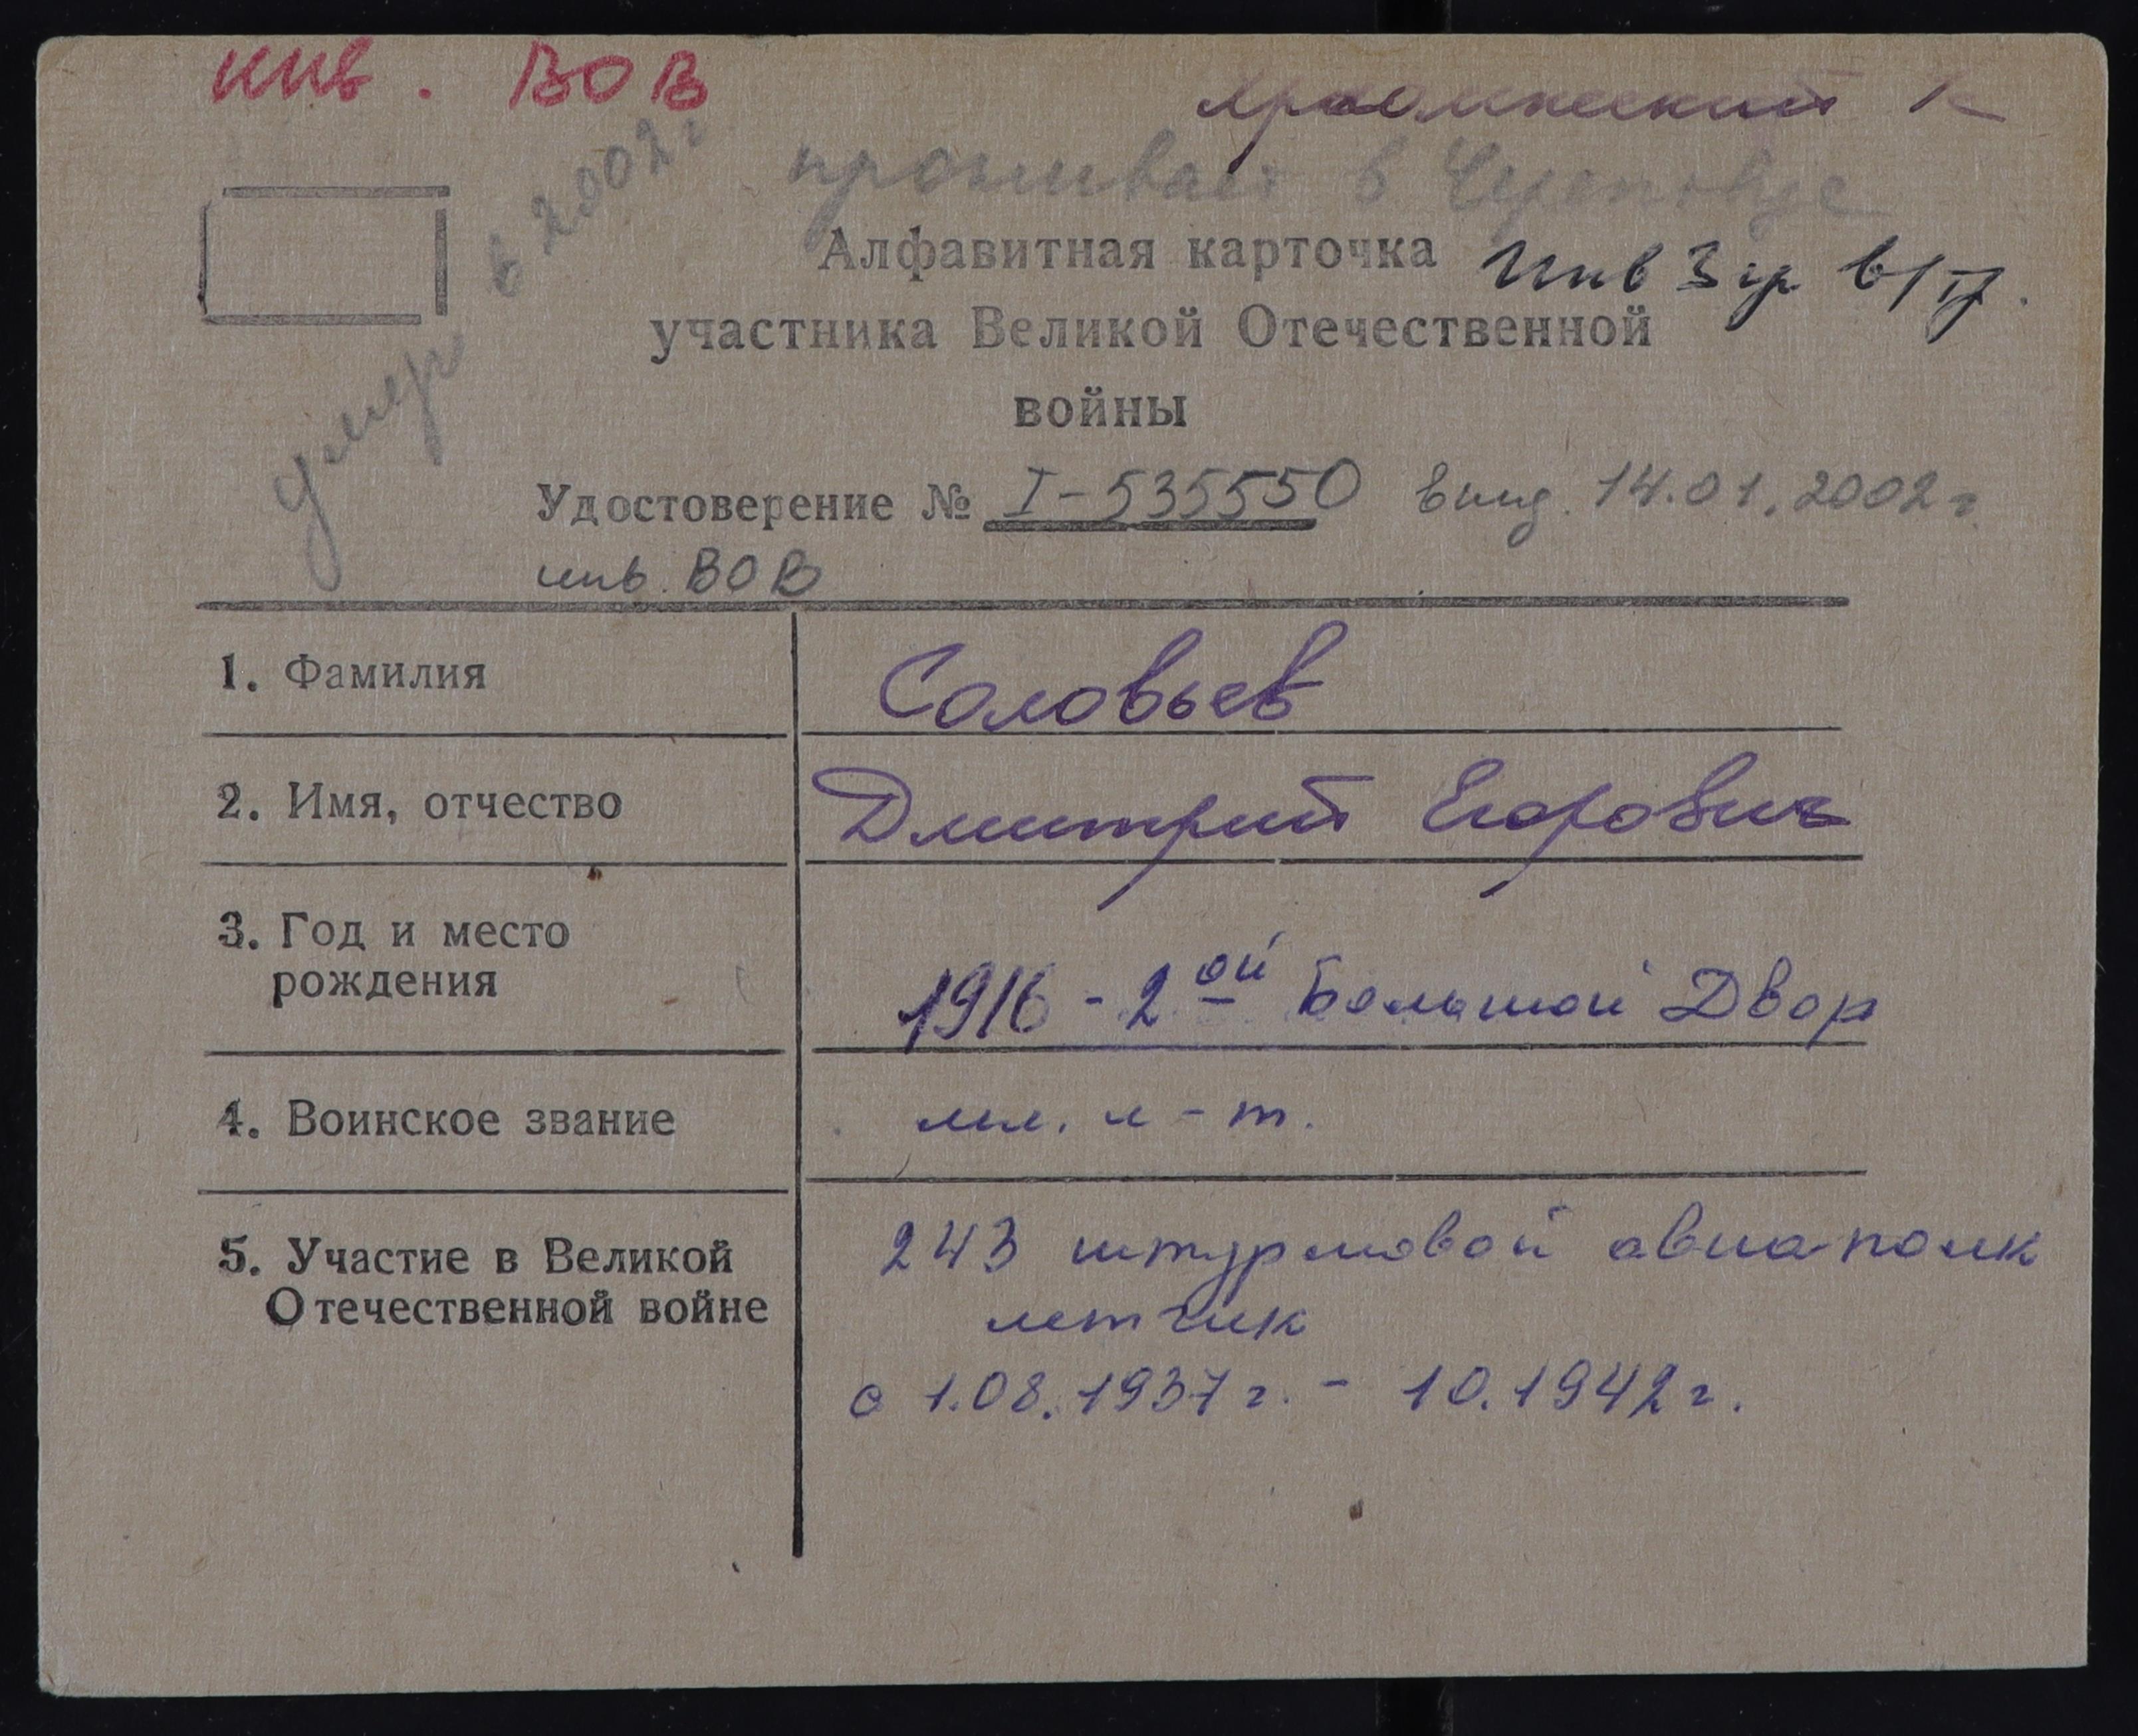 инв. ВОВ
проживает в Череповце
умер в 2002 г
Алфавитная карточка
Инв 3 гр в/тр.
участника Великой Отечественной
войны
Удостоверение № I-535550 выд. 14.01.2002 г.
инв. ВОВ
1. Фамилия Соловьев
2. Имя, отчество Дмитрий Егорович
3. Год и место
рождения 1916 - 2ой Большой Двор
4. Воинское звание мл. л-т.
5. Участие в Великой
Отечественной войне
243 штурмовой авиаполк
летчик
с 1.08.1937 г. - 10.1942 г.